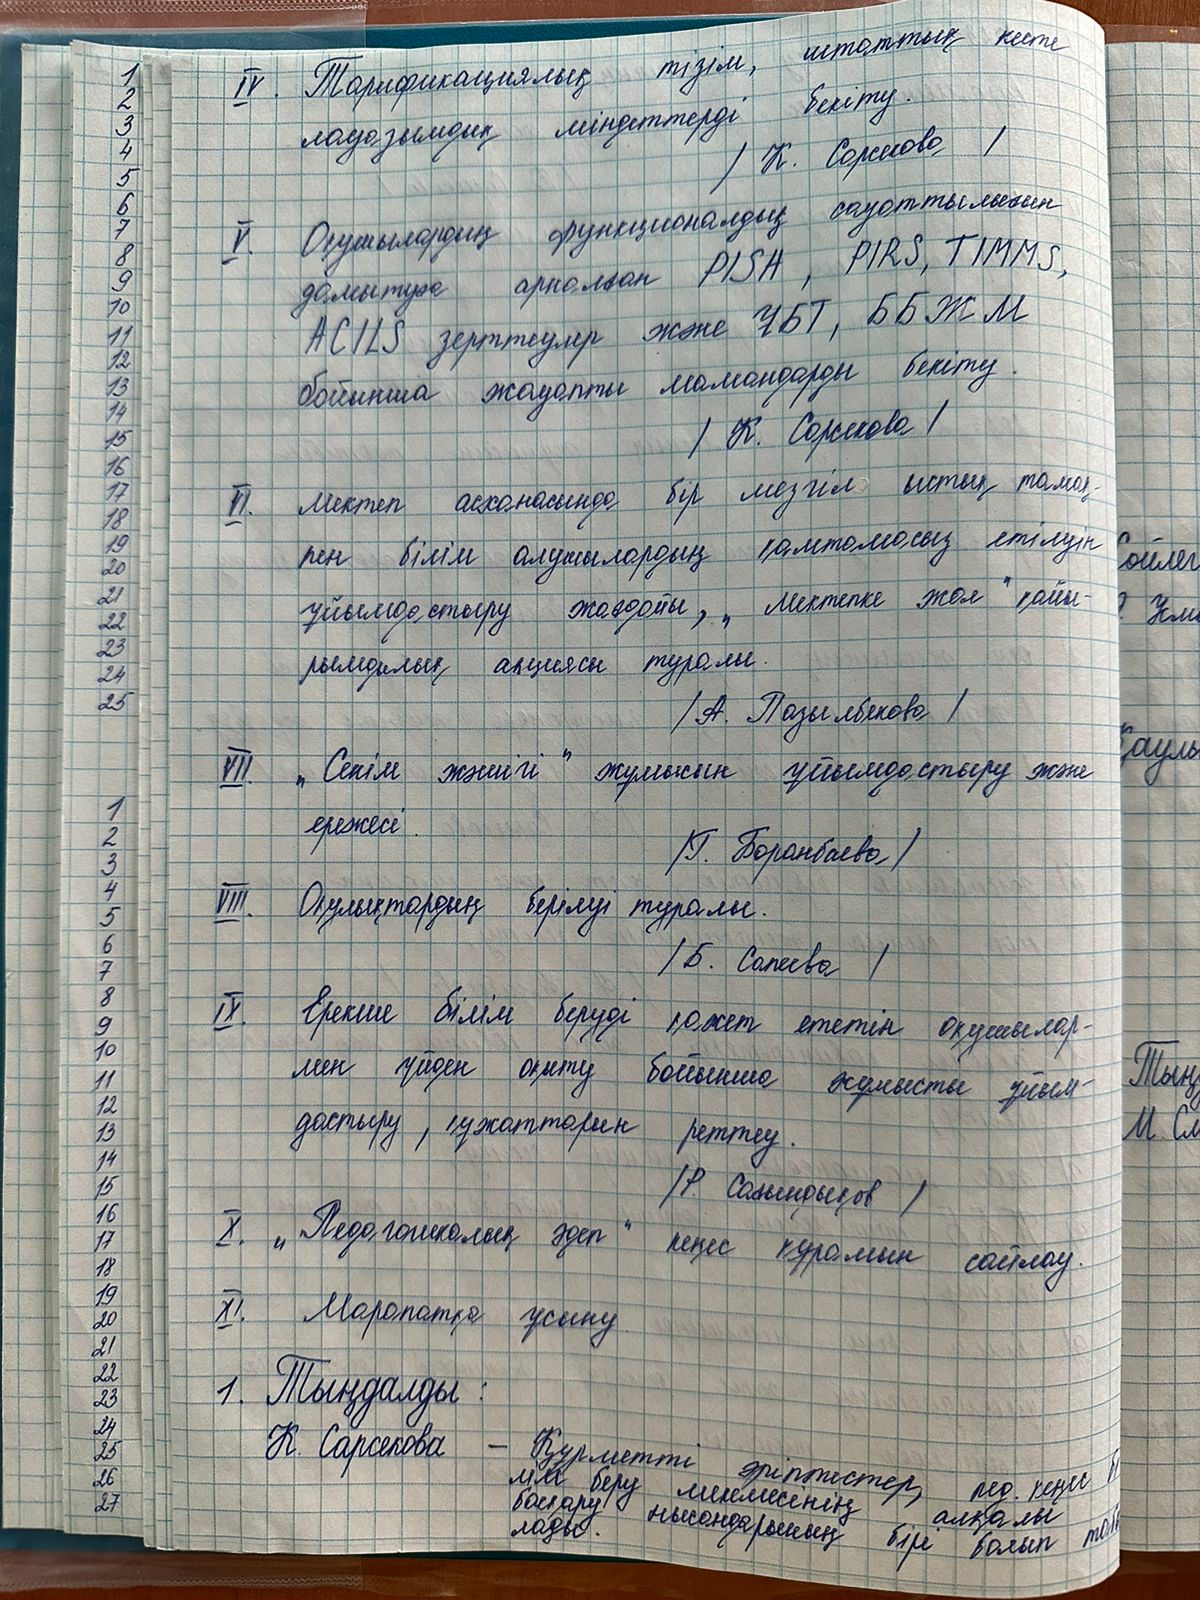 IV. Тарификациялық тізім, штаттық кесте
лауазымдық міндеттерді бекіту.
/ К. Сарсекова /
V. Оқушылардың функционалдық сауаттылығын
дамытуға арналған PISA, PIRS, TIMMS,
ACILS зерттеулер және ҰБТ, ББЖМ
бойынша жауапты мамандарды бекіту.
/ К. Сарсекова /
VI. Мектеп асханасында бір мезгіл ыстық тамақ-
пен білім алушылардың қамтамасыз етілуін
ұйымдастыру жағдайы, „Мектепке жол" қайы-
рымдылық акциясы туралы.
/ А. Пазылбекова /
VII. „Сенім жәшігі" жұмысын ұйымдастыру және
ережесі.
/ Г. Боранбаева /
VIII. Оқулықтардың берілуі туралы.
/ Б. Сапиева /
IX. Ерекше білім беруді қажет ететін оқушылар-
мен үйден оқыту бойынша жұмысты ұйым-
дастыру, құжаттарын реттеу.
/ Р. Сағындықов /
X. „Педагогикалық әдеп" кеңес құрамын сайлау.
XI. Марапатқа ұсыну
1. Тыңдалды:
К. Сарсекова – Құрметті әріптестер, пед. кеңес бі
лім беру мекемесінің алқалы
басқару нысандарының бірі болып табы
лады.
1
2
3
4
5
6
7
8
9
10
11
12
13
14
15
16
17
18
19
20
21
22
23
24
25
1
2
3
4
5
6
7
8
9
10
11
12
13
14
15
16
17
18
19
20
21
22
23
24
25
26
27
Сөйлег
Қаулы
Тыңд
М. См